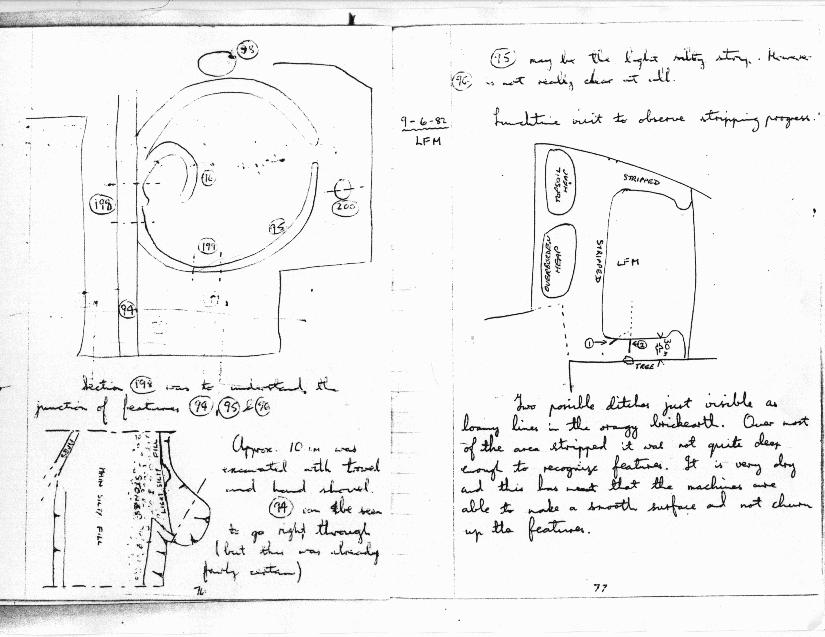 98
96
198
200
95
199
94
Section 198 was to understand the
junction of features 94, 95 & 96
MAIN SILTY FILL
STONES
Approx. 10 cm was
excavated with trowel
and hand shovel.
94 can be seen
to go right through
(but this was already
fairly certain)
76
95 may be the light silty stony. However
96 is not really clear at all.
9-6-82
LFM
Lunchtime visit to observe stripping progress.
TOPSOIL HEAP
STRIPPED
OVERBURDEN HEAP
STRIPPED
LFM
1
2
30m
TREE
Two possible ditches just visible as
loamy lines in the orangy brickearth. Over most
of the area stripped it was not quite deep
enough to recognise features. It is very dry
and this has meant that the machines are
able to make a smooth surface and not churn
up the features.
77